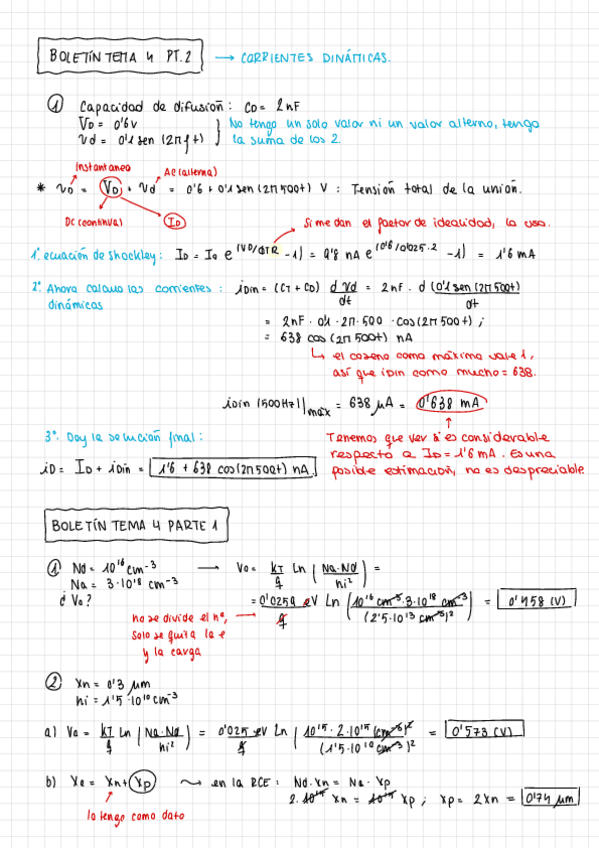 BOLETÍN TEMA 4 PT.2 → CORRIENTES DINÁMICAS.
① Capacidad de difusión: CD = 2nF
VD = 0'6V
vd = 0'1 sen (2πft)
No tengo un solo valor ni un valor alterno, tengo
la suma de los 2.
Instantaneo
AC (alterna)
* vD = VD + vd = 0'6 + 0'1 sen (2π500t) V : Tensión total de la unión.
DC (continua)
ID
Si me dan el factor de idealidad, lo uso.
1º. ecuación de shockley: ID = I0 e (VD/ΦT·n -1) = 9'8 nA e (0'6/0'025·2 -1) = 1'6 mA
2º. Ahora calculo las corrientes dinámicas : iDin = (CT + CD) d vd / dt = 2nF · d (0'1 sen (2π500t)) / dt
= 2nF · 0'1 · 2π · 500 · cos (2π500t) ;
= 638 cos (2π500t) nA
↳ el coseno como máximo vale 1,
así que iDin como mucho = 638.
iDin (500Hz)|máx = 638 μA = 0'638 mA
3º. Doy la solución final:
Tenemos que ver si es considerable
respecto a ID = 1'6 mA. Es una
posible estimación, no es despreciable
iD = ID + iDin = 1'6 + 638 cos (2π500t) nA
BOLETÍN TEMA 4 PARTE 1
① Nd = 10^16 cm^-3 → V0 = kT/q Ln (Na·Nd / ni²) =
Na = 3·10^18 cm^-3
¿V0?
= 0'0259 eV / q Ln (10^16 cm^-3 · 3·10^18 cm^-3 / (2'5·10^13 cm^-3)²) = 0'458 (V)
no se divide el nº,
solo se quita la e
y la carga
② xn = 0'3 μm
ni = 1'5·10^10 cm^-3
a) V0 = kT/q Ln (Na·Nd / ni²) = 0'025 eV / q Ln (10^15 · 2·10^15 (cm^-3)² / (1'5·10^10 cm^-3)²) = 0'573 (V)
b) Xe = xn + xp ⤳ en la RCE : Nd·xn = Na·xp
lo tengo como dato
2·10^15 xn = 10^15 xp ; xp = 2xn = 0'74 μm